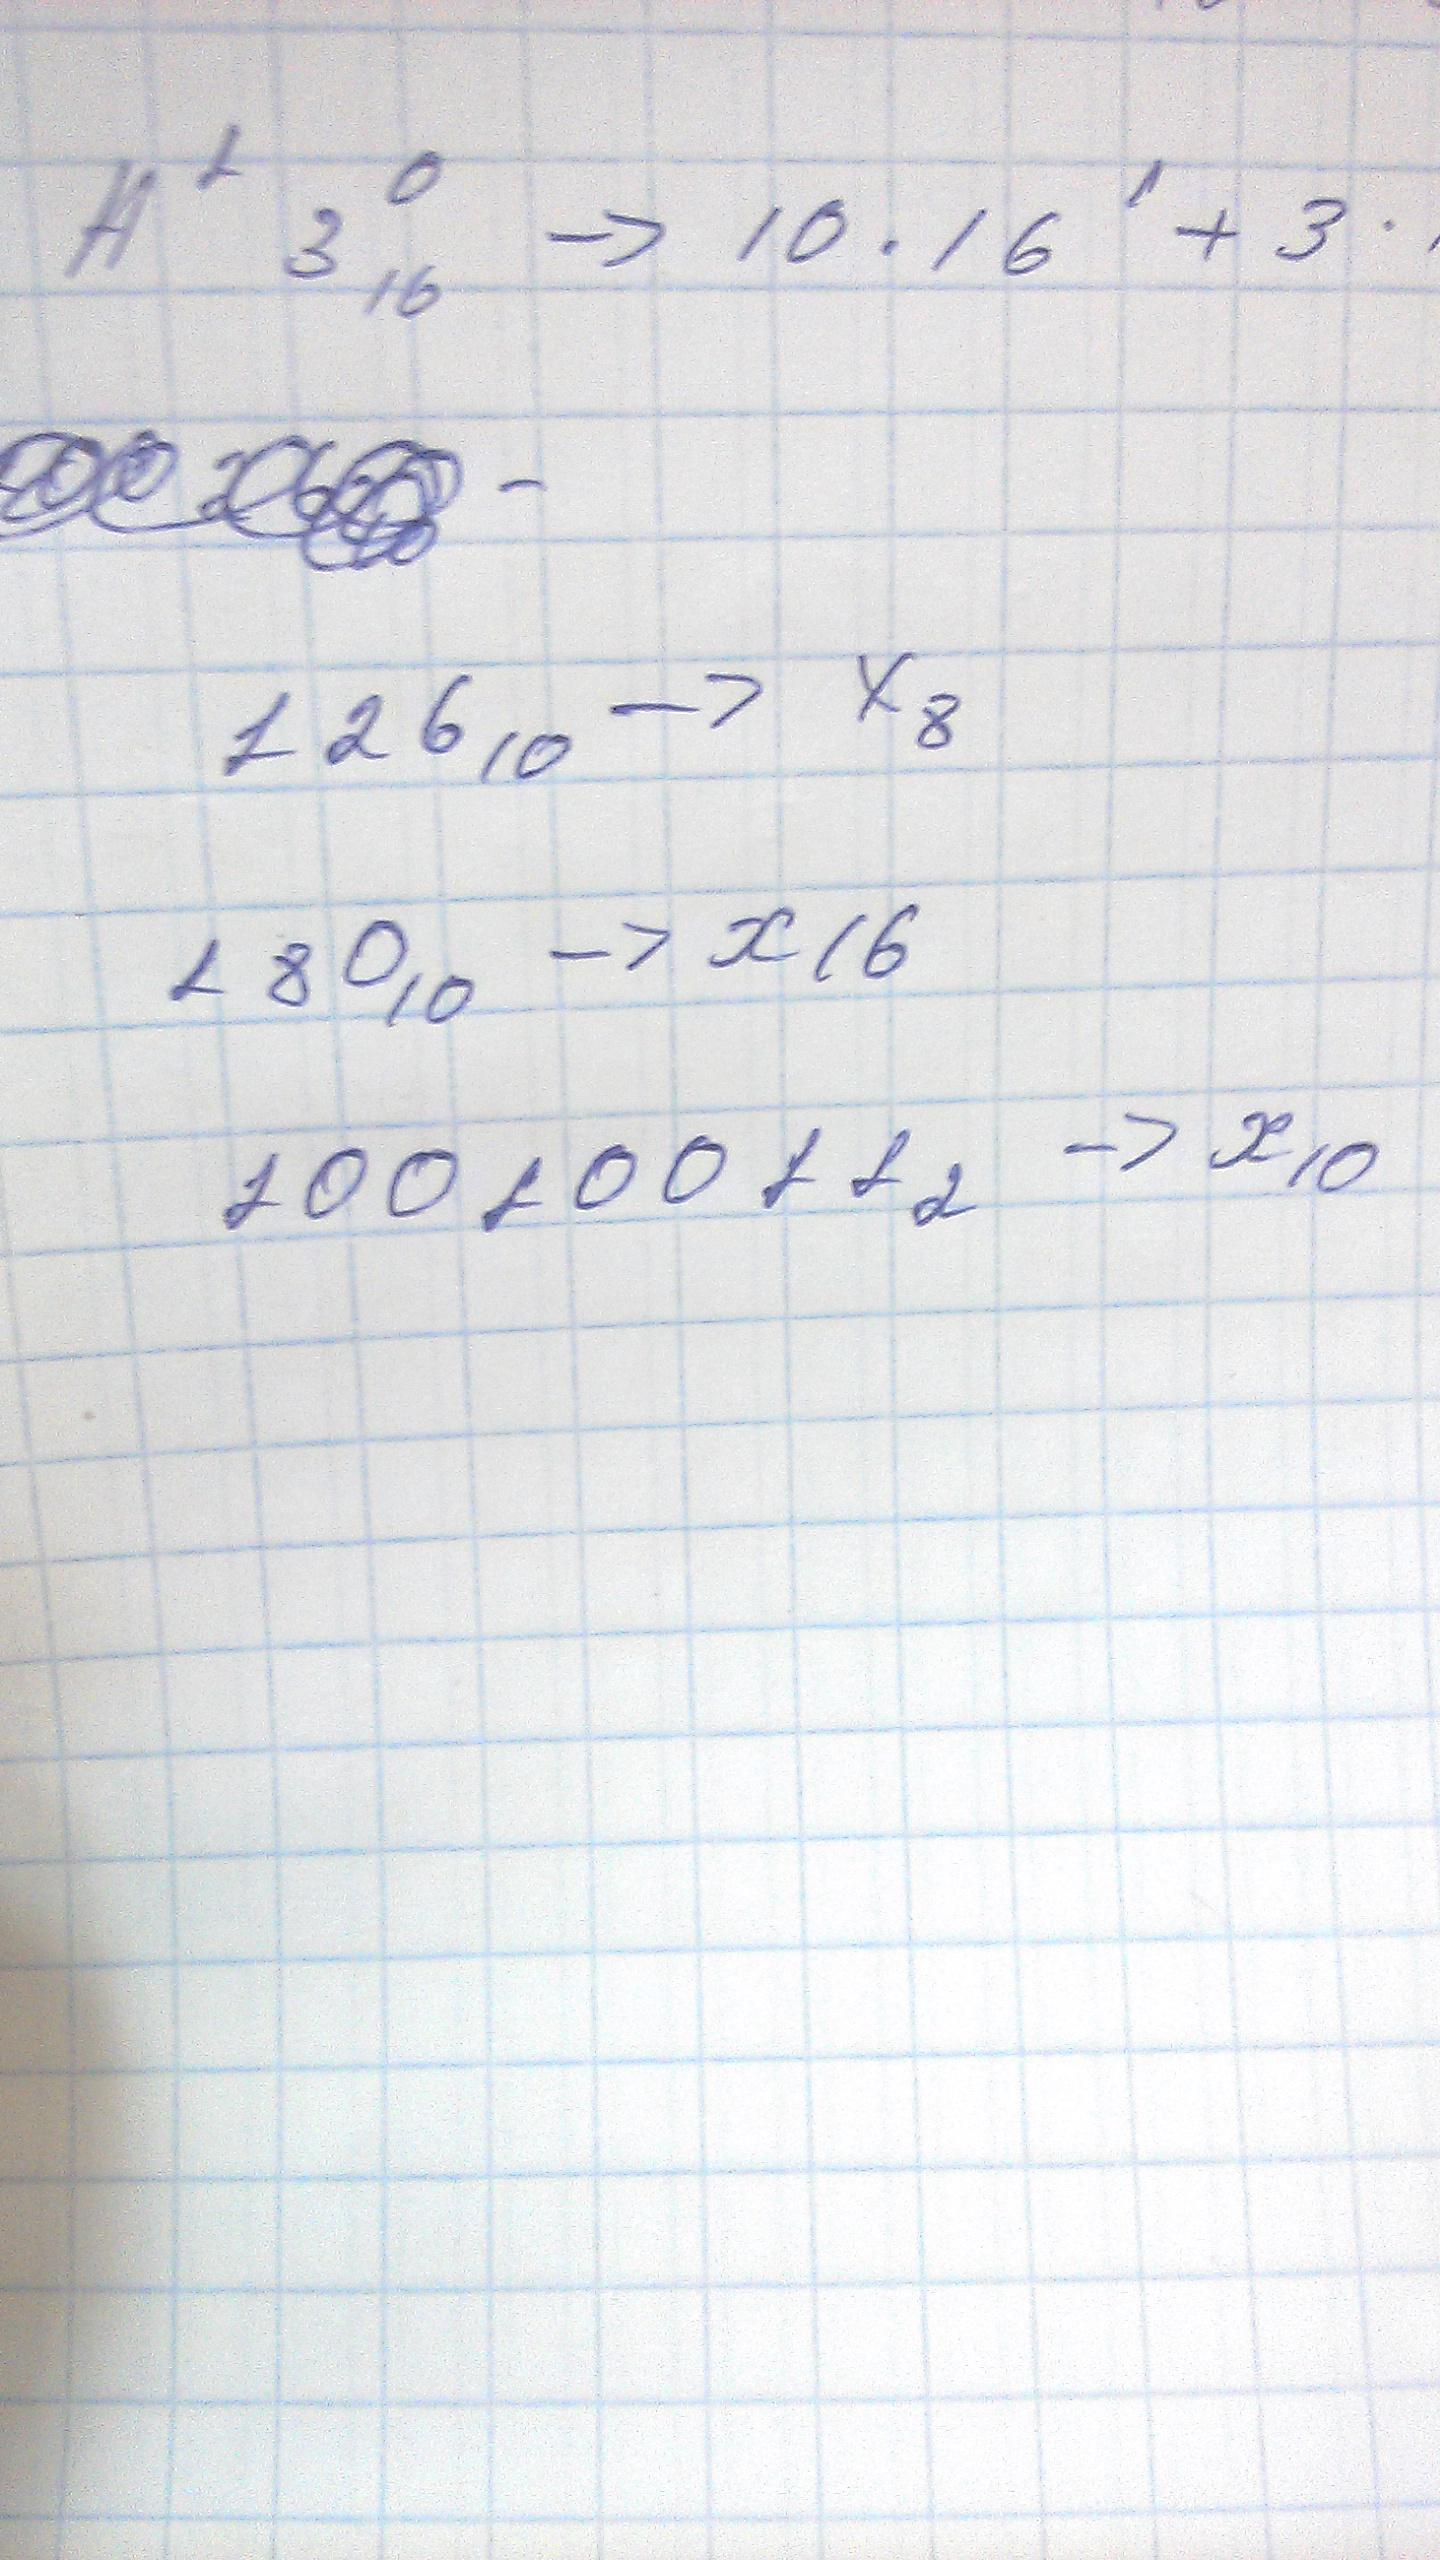 A¹ 3⁰₁₆ -> 10 · 16¹ + 3 ·
-
126₁₀ -> x₈
180₁₀ -> x 16
10010011₂ -> x₁₀